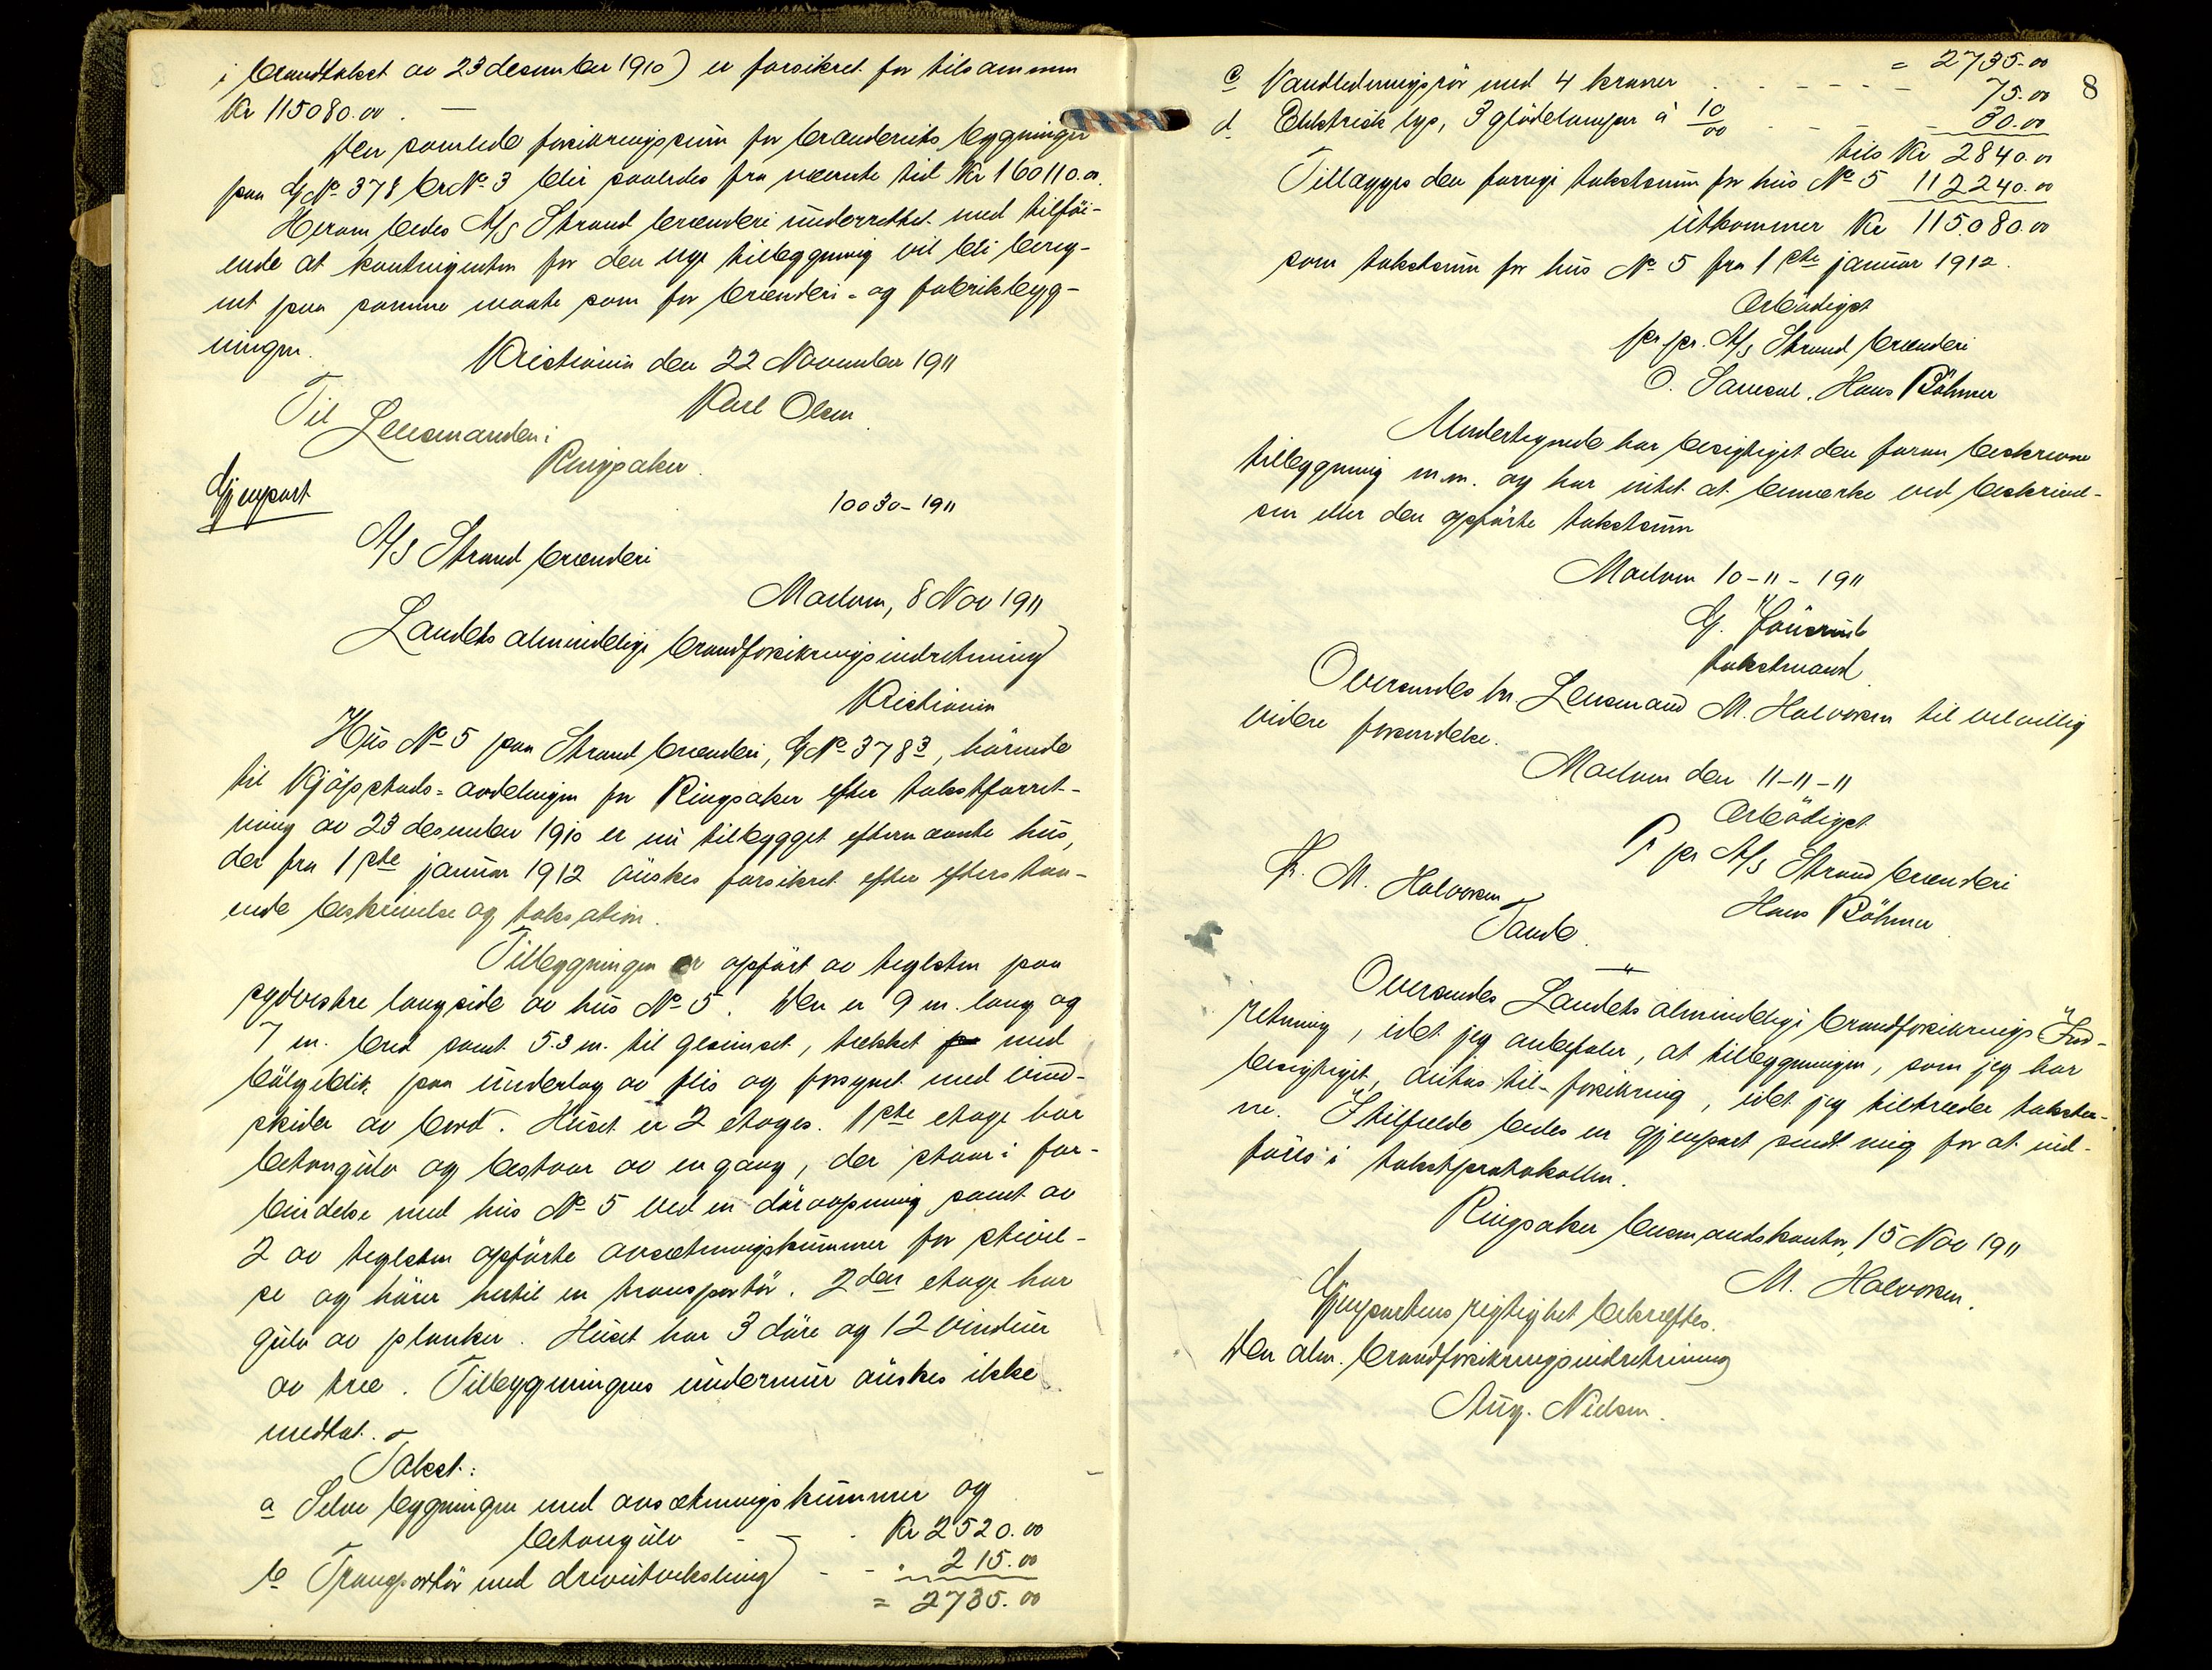 i brandtakst av 23 desember 1910) er forsikret for tilsammen
Kr 115080.00. —
Den samlede forsikringssum for brænderiets bygninger
paa G No 378 br No 3 blir saaledes fra nævnte tid Kr 160110.00.
Herom bedes A/S Strand brænderi underrettet med tilföi-
ende at kontingenten for den nye tilbygning vil bli bereg-
net paa samme maate som for brænderi- og fabrikbyg-
ningen.
Kristiania den 22 November 1911
Karl Olsen
Til
Lensmanden i
Ringsaker.
Gjenpart
10030-1911
A/S Strand brænderi
Maelum, 8 Nov 1911
Landets almindelige brandforsikringsindretning
Kristiania
Hus No 5 paa Strand brænderi, G No 378 3, hörende
til Kjöpstads-avdelingen for Ringsaker efter takstforret-
ning av 23 desember 1910 er nu tilbygget efternævnte hus,
der fra 1ste januar 1912 önskes forsikret efter efterstaa-
ende beskrivelse og taksation.
Tilbygningen er opfört av teglsten paa
sydvestre langside av hus No 5. Den er 9 m. lang og
7 m. bred samt 5.3 m. til gesimset, tækket med
bölgeblik paa underlag av flis og forsynet med vind-
skider av bord. Huset er 2 etages. 1ste etage har
betongulv og bestaar av en gang, der staar i for-
bindelse med hus No 5 ved en döraapning samt av
2 av teglsten opförte avsætningskummer for stivel-
se og hörer hertil en transportör. 2den etage har
gulv av planker. Huset har 3 döre og 12 vinduer
av træ. Tilbygningens undermur önskes ikke
medtat.
Takst:
a Selve bygningen med avsætningskummer og
betongulv - - . Kr 2520.00
b Transportör med drivutveksling - - . 215.00
= 2735.00
8
= 2735.00
c Vandledningsrör med 4 kraner . - - - - - 75.00
d. Elektrisk lys, 3 glödelamper à 10/00 - - - 30.00
tils Kr 2840.00
Tillægges den forrige takstsum for hus No 5 112240.00
utkommer Kr 115.080.00
som takstsum for hus No 5 fra 1ste januar 1912.
Ærbödigst
pr. pr. A/S Strand brænderi
Hans Böhmer
Undertegnede har besigtiget den foran beskrevne
tilbygning m.m. og har intet at bemerke ved beskrivel-
sen eller den opförte takstsum
Maelum 10-11-1911
takstmand
Oversendes hr. Lensmand M. Halvorsen til velvillig
videre forsendelse.
Maelum den 11-11-11
Ærbödigst
Pr pr A/S Strand brænderi
Hans Böhmer
Hr. M. Halvorsen
Tande.
—"—
Oversendes Landets almindelige brandforsikrings Ind-
retning, idet jeg anbefaler, at tilbygningen, som jeg har
besigtiget, antas til forsikring, idet jeg tiltræder takster-
ne. I tilfælde bedes en gjenpart sendt mig for at ind-
föres i takstprotokollen.
Ringsaker lensmandskontor, 15 Nov 1911
M. Halvorsen.
Gjenpartens rigtighet bekræftes.
Den alm. brandforsikringsindretning
Aug. Nielsen.